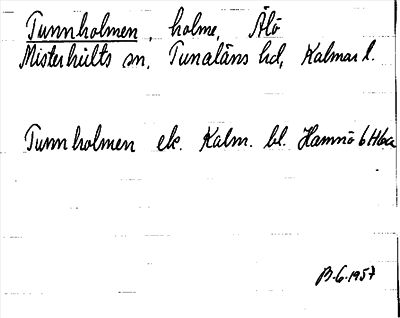 Tunnholmen, holme, Älö
Misterhults sn, Tunaläns hd, Kalmar l.
Tunnholmen ek. Kalm. bl. Hamnö 6H6a
B.G. 1957